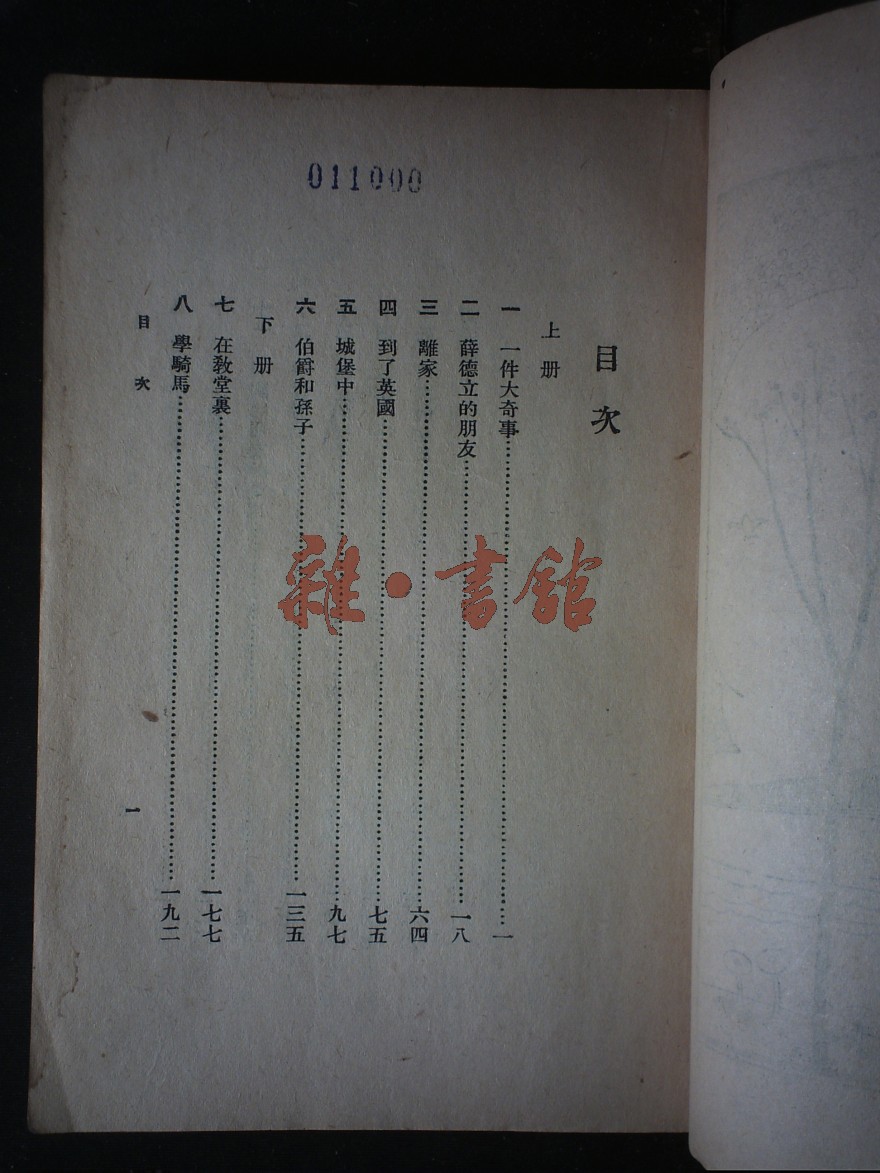 011000
目次
上册
一 一件大奇事……一
二 薛德立的朋友……一八
三 離家……六四
四 到了英國……七五
五 城堡中……九七
六 伯爵和孫子……一三五
下册
七 在教堂裏……一七七
八 學騎馬……一九二
目次
一
雜·書館